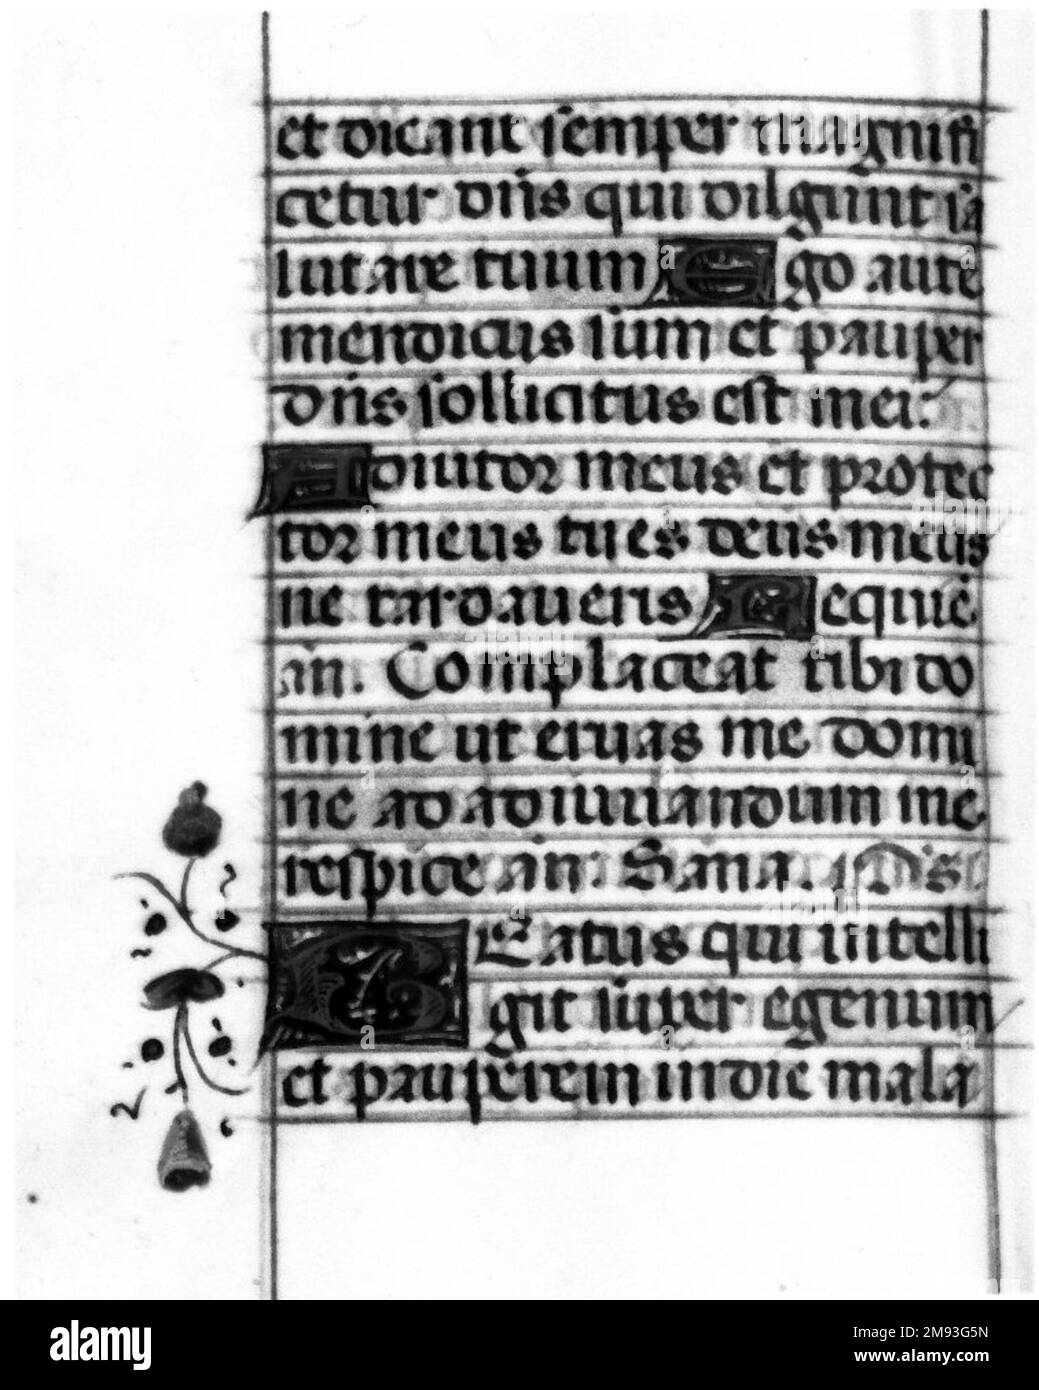 et dicant semper magnifi
cetur dns qui diligunt sa
lutare tuum Ego aute
mendicus sum et pauper
dns sollicitus est mei:
Adiutor meus et protec
tor meus tu es deus meus
ne tardaveris Requie
an. Complaceat tibi do
mine ut eruas me domi
ne ad adiuuandum me
respice an. Sana. Ps
BEatus qui intelli
git super egenum
et pauperem in die mala
alamy
Image ID: 2M93G5N
www.alamy.com